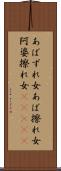 あばずれ女あば擦れ女
阿婆擦れ女